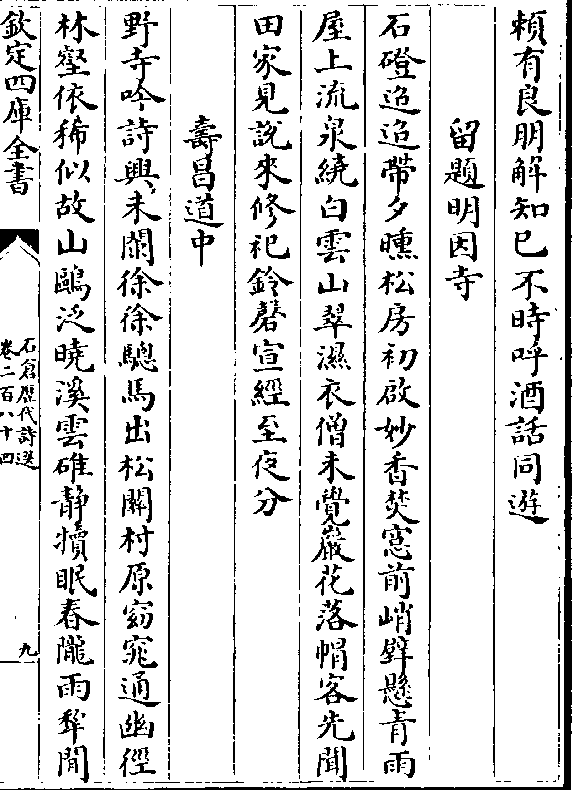 頼有良朋解知已不時呼酒話同遊
留題明因寺
石磴迢迢帶夕曛松房初啟妙香焚窓前峭壁懸青雨
屋上流泉繞白雲山翠濕衣僧未覺巖花落帽客先聞
田家見說來修祀鈴磬宣經至夜分
壽昌道中
野寺吟詩興未闌徐徐驄馬出松關村原窈窕通幽徑
林壑依稀似故山鷗泛曉溪雲碓静犢眠春隴雨犂閒
欽定四庫全書
石倉歴代詩選
卷二百八十四
九